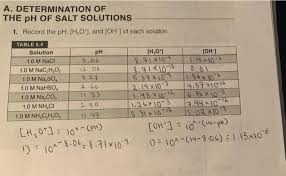 A. DETERMINATION OF
THE pH OF SALT SOLUTIONS
1. Record the pH, [H₃O⁺], and [OH⁻] of each solution.
TABLE 5.4
Solution pH [H₃O⁺] [OH⁻]
1.0 M NaCl 8.06 8.71×10⁻⁹ 1.15×10⁻⁶
1.0 M NaC₂H₃O₂ 12.06 0.01
1.0 M Na₂SO₄
1.0 M NaHSO₄ 2.66 2.19×10⁻³ 4.57×10⁻¹²
1.0 M Na₂CO₃ 11.83
1.0 M NH₄Cl 2.90 1.26×10⁻³ 7.94×10⁻¹²
1.0 M NH₄C₂H₃O₂ 11.48
[H₃O⁺] = 10^-(pH) [OH⁻] = 10^-(14-pH)
1) = 10^-8.06 = 8.71×10⁻⁹ 1) = 10^-(14-8.06) = 1.15×10⁻⁶